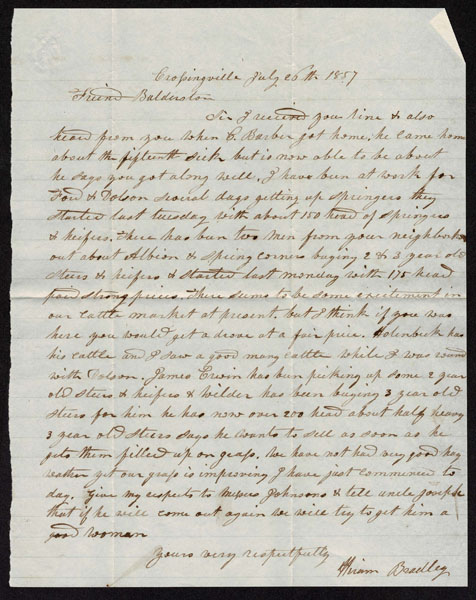 Crossingville July 26th 1857
Friend Balderston
Sir I received you line & also
heard from you when C. Barber got home, he came home
about the fifteenth sick but is now able to be about
he says you got along well, I have ben at work for
Ford & Dolson several days getting up springers they
started last tuesday with about 150 head of springers
& heifers, there has ben two men from your neighborhood
out about Albion & Spring corners buying 2 & 3 year old
steers & heifers & started last monday with 175 head
paid strong prices. There seems to be some excitement in
our cattle market at present but I think if you was
here you would get a drove at a fair price. Holenbeck has
his cattle and I saw a good many cattle while I was round
with Dolson. James Erwin has ben picking up some 2 year
old steers & heifers & Wilder has been buying 3 year old
steers for him he has now over 200 head about half heavy
3 year old steers says he wants to sell as soon as he
gets them filled up on grass. We have not had very good hay
wether yet our grass is improving I have just commenced to
day. Give my respects to Misses Johnsons & tell uncle Joseph
that if he will come out again we will try to get him a
good woman
yours very respectfully
Hiram Bradley